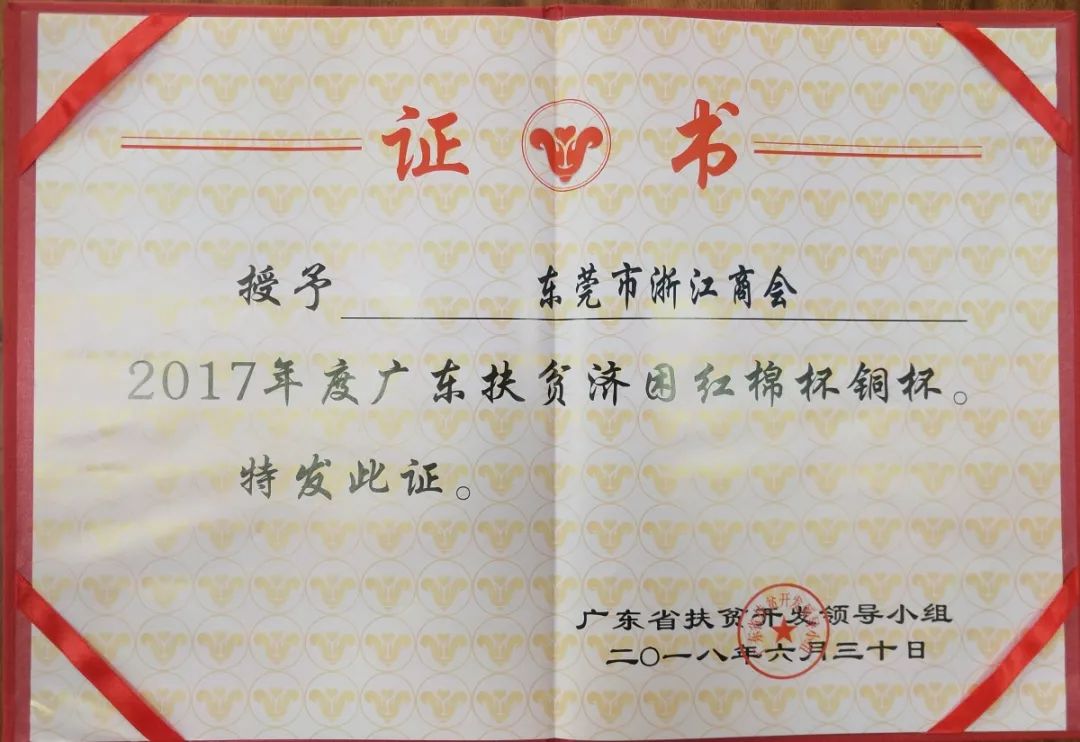 证书
授予 东莞市浙江商会
2017年度广东扶贫济困红棉杯铜杯。
特发此证。
广东省扶贫开发领导小组
二〇一八年六月三十日